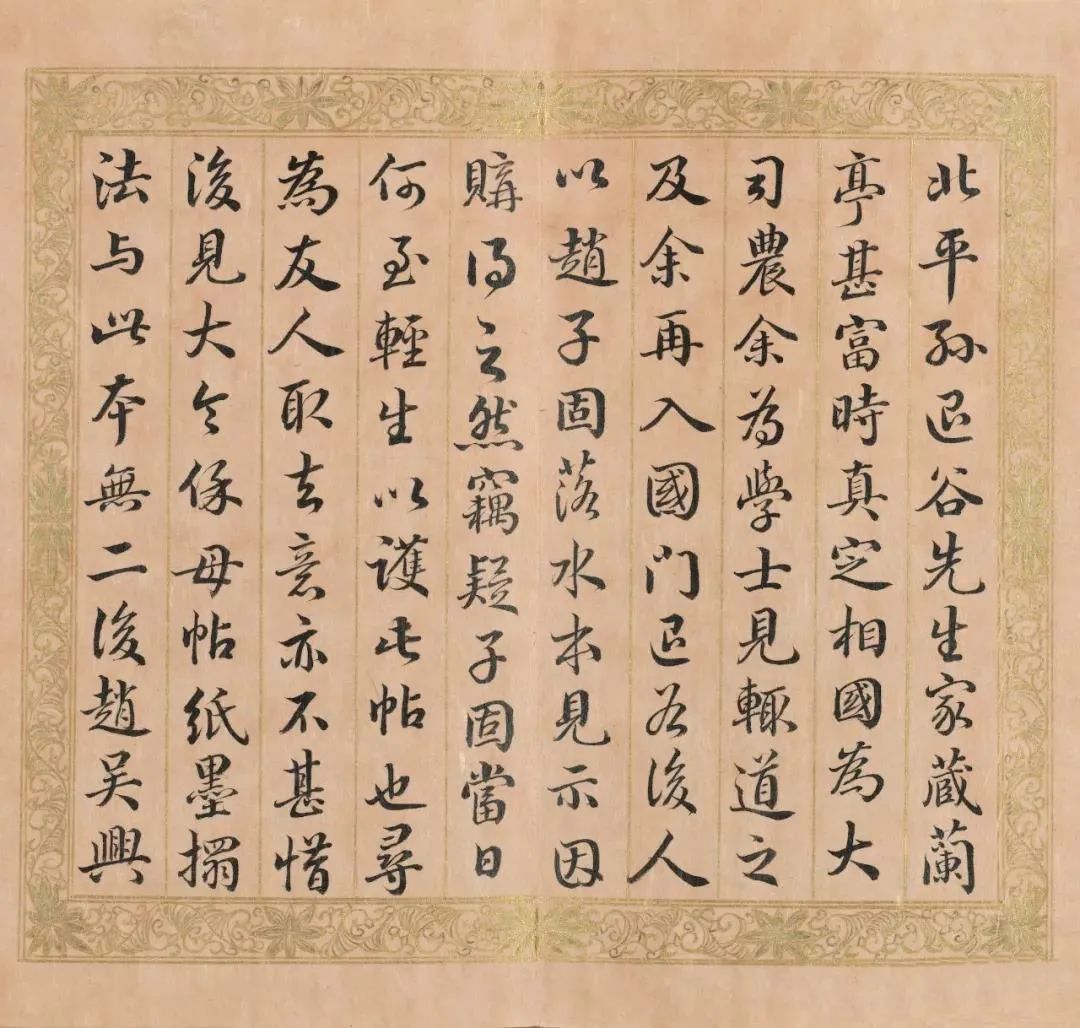 北平孙退谷先生家蔵蘭
亭甚富時真定相國為大
司農余為學士見輙道之
及余再入國門退谷後人
以趙子固落水本見示因
購得之然竊疑子固當日
何至輕生以護此帖也尋
為友人取去意亦不甚惜
後見大令保母帖紙墨搨
法与此本無二後趙吳興